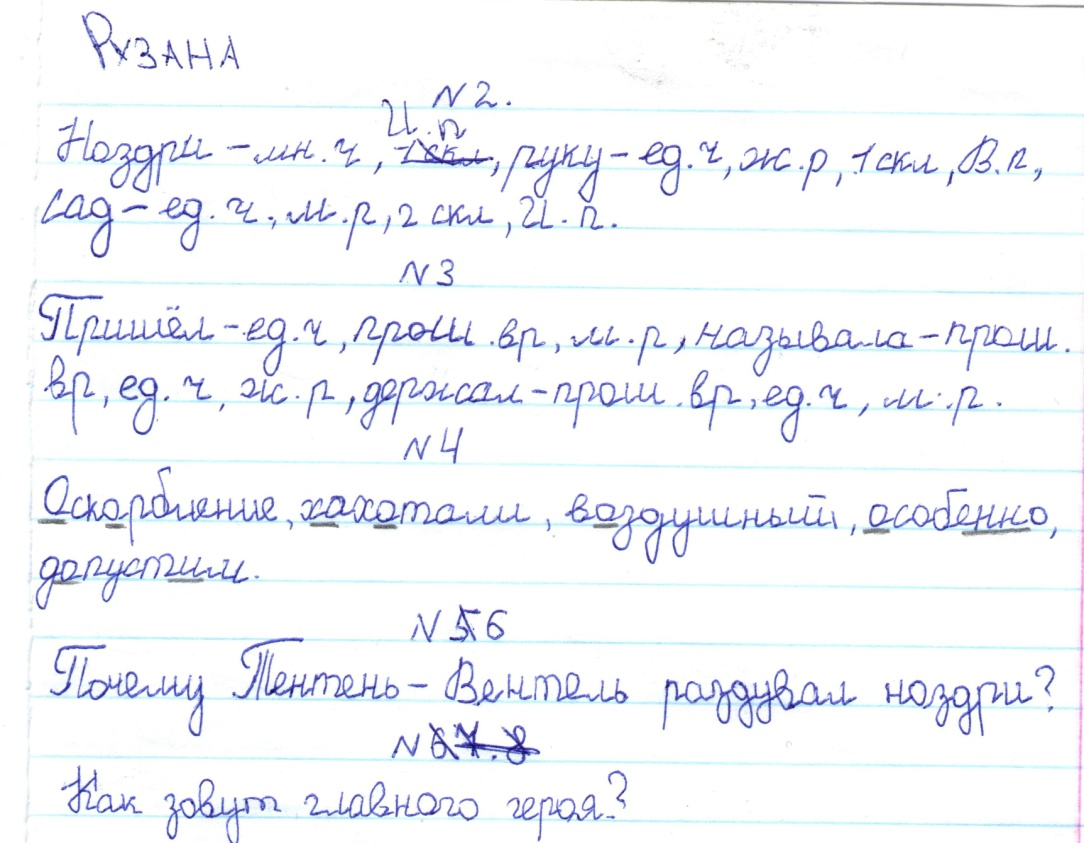 Рузана
N 2.
И.п
Ноздри – мн.ч, 1 скл, руку – ед.ч, ж.р, 1 скл, В.п,
сад – ед.ч, м.р, 2 скл, И.п.
N 3
Пришёл – ед.ч, прош.вр, м.р, называла – прош.
вр, ед.ч, ж.р, держал – прош.вр, ед.ч, м.р.
N 4
Оскорбление, хахотали, воздушный, особенно,
допустим.
N 5 6
Почему Тентень – Вентель раздувал ноздри?
N 6 7. 8
Как зовут главного героя?